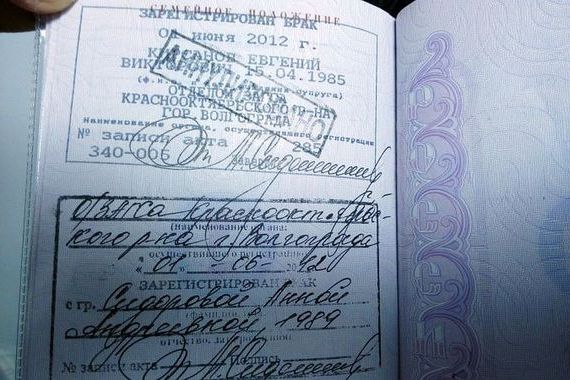 СЕМЕЙНОЕ ПОЛОЖЕНИЕ
ЗАРЕГИСТРИРОВАН БРАК
01 июня 2012 г.
ЕВГЕНИЙ
15.04.1985
(ф.и.о. супруга)
ОТДЕЛОМ ЗАГСА
КРАСНООКТЯБРЬСКОГО Р-НА
ГОР. ВОЛГОГРАДА
Наименование органа, осуществившего регистрацию
№ записи акта 285
340-006 Заверено
О/ЗАГСа Краснооктябрьс-
кого р-на г. Волгограда
(наименование органа:
осуществившего регистрацию)
"01" 06 2012
ЗАРЕГИСТРИРОВАН БРАК
с гр. Сидоровой Анной
Андреевной, 1989
отчество, дата рождения)
№ записи акта Подпись